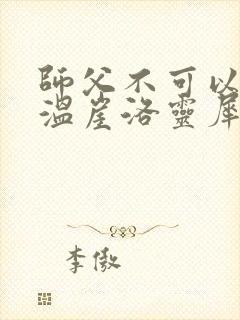 師父不可以
溫崖洛靈犀
李傲